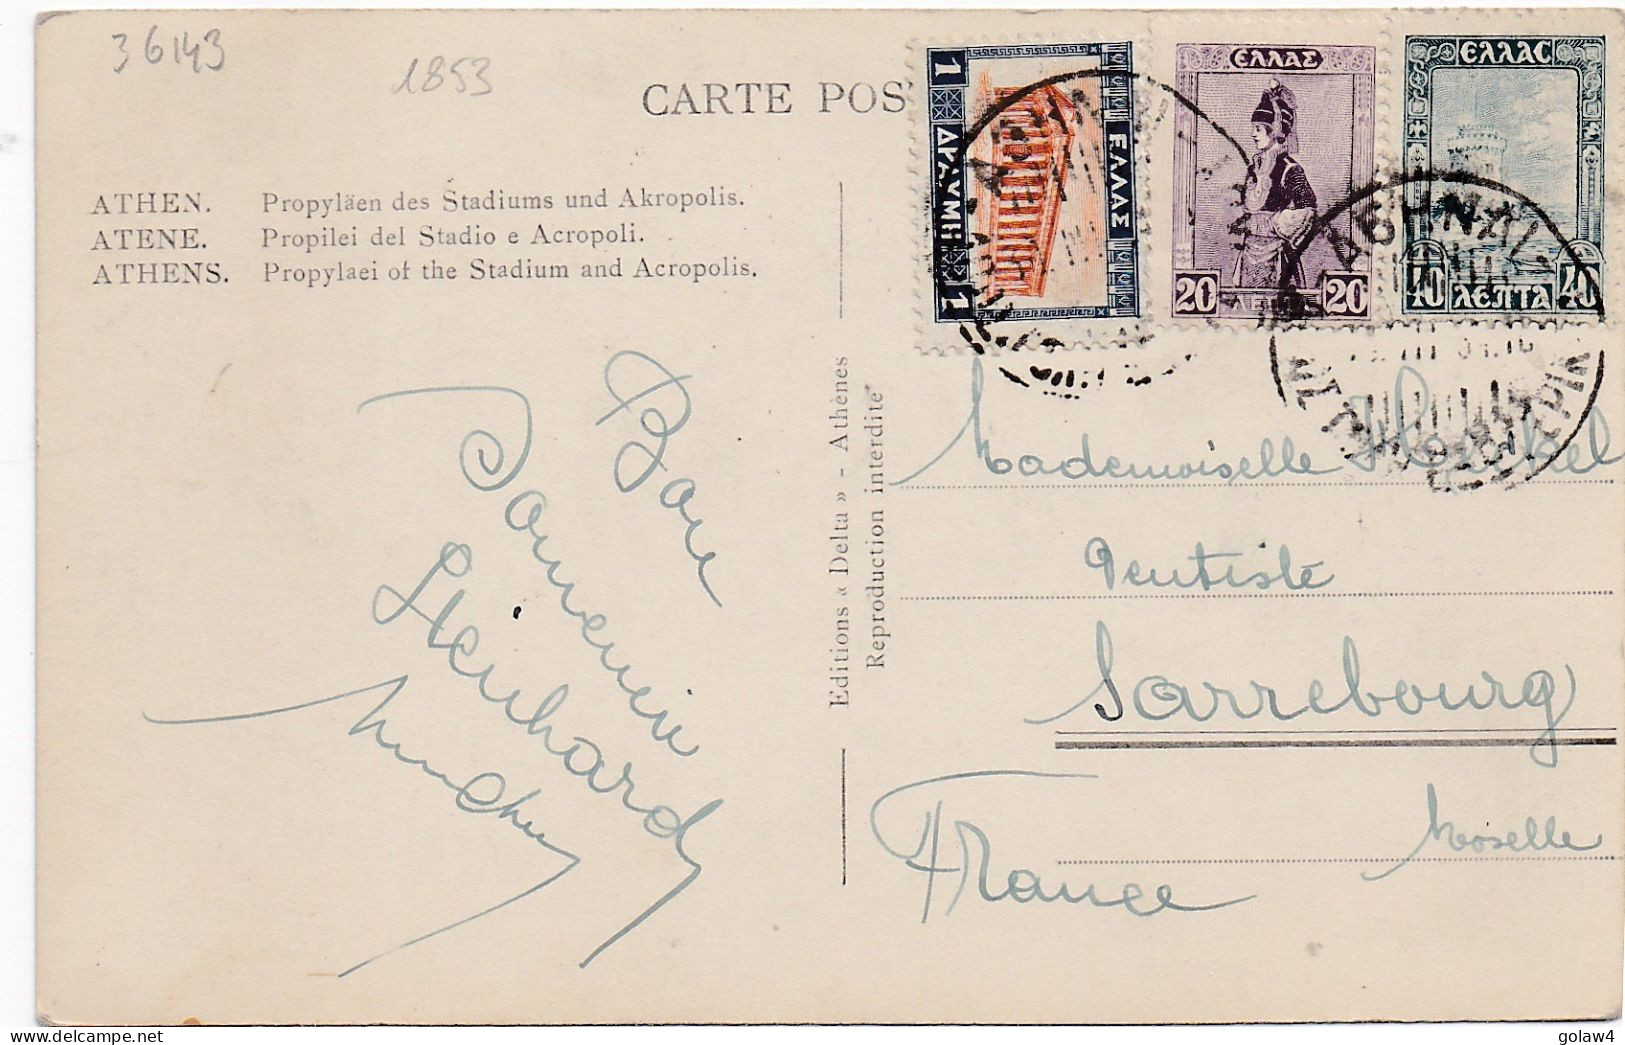 36143
1853
CARTE POS
ATHEN. Propyläen des Stadiums und Akropolis.
ATENE. Propilei del Stadio e Acropoli.
ATHENS. Propylaei of the Stadium and Acropolis.
1 ΔΡΑΧΜΗ 1
ΕΛΛΑΣ
ΕΛΛΑΣ
20 20
ΕΛΛΑΣ
40 ΛΕΠΤΑ 40
ΑΘΗΝΑΙ
Bon
Souvenir
Steinhard
Editions « Delta » - Athènes
Reproduction interdite
Mademoiselle Haeckel
Dentiste
Sarrebourg
Moselle
France
golaw4